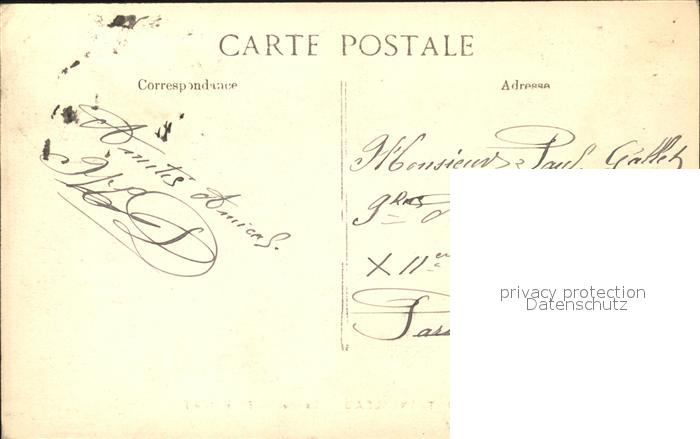 CARTE POSTALE
Correspondance
Adresse
Amitiés Amicas.
Monsieur Paul Gallet
9
X 11
Par
privacy protection
Datenschutz